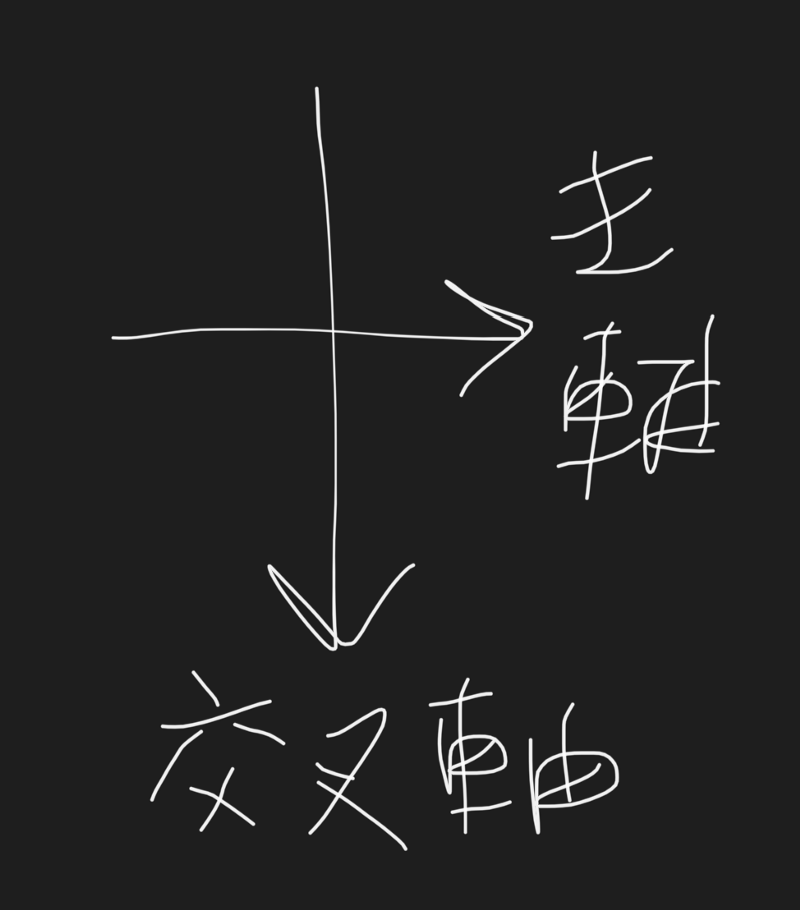 主軸
交叉軸